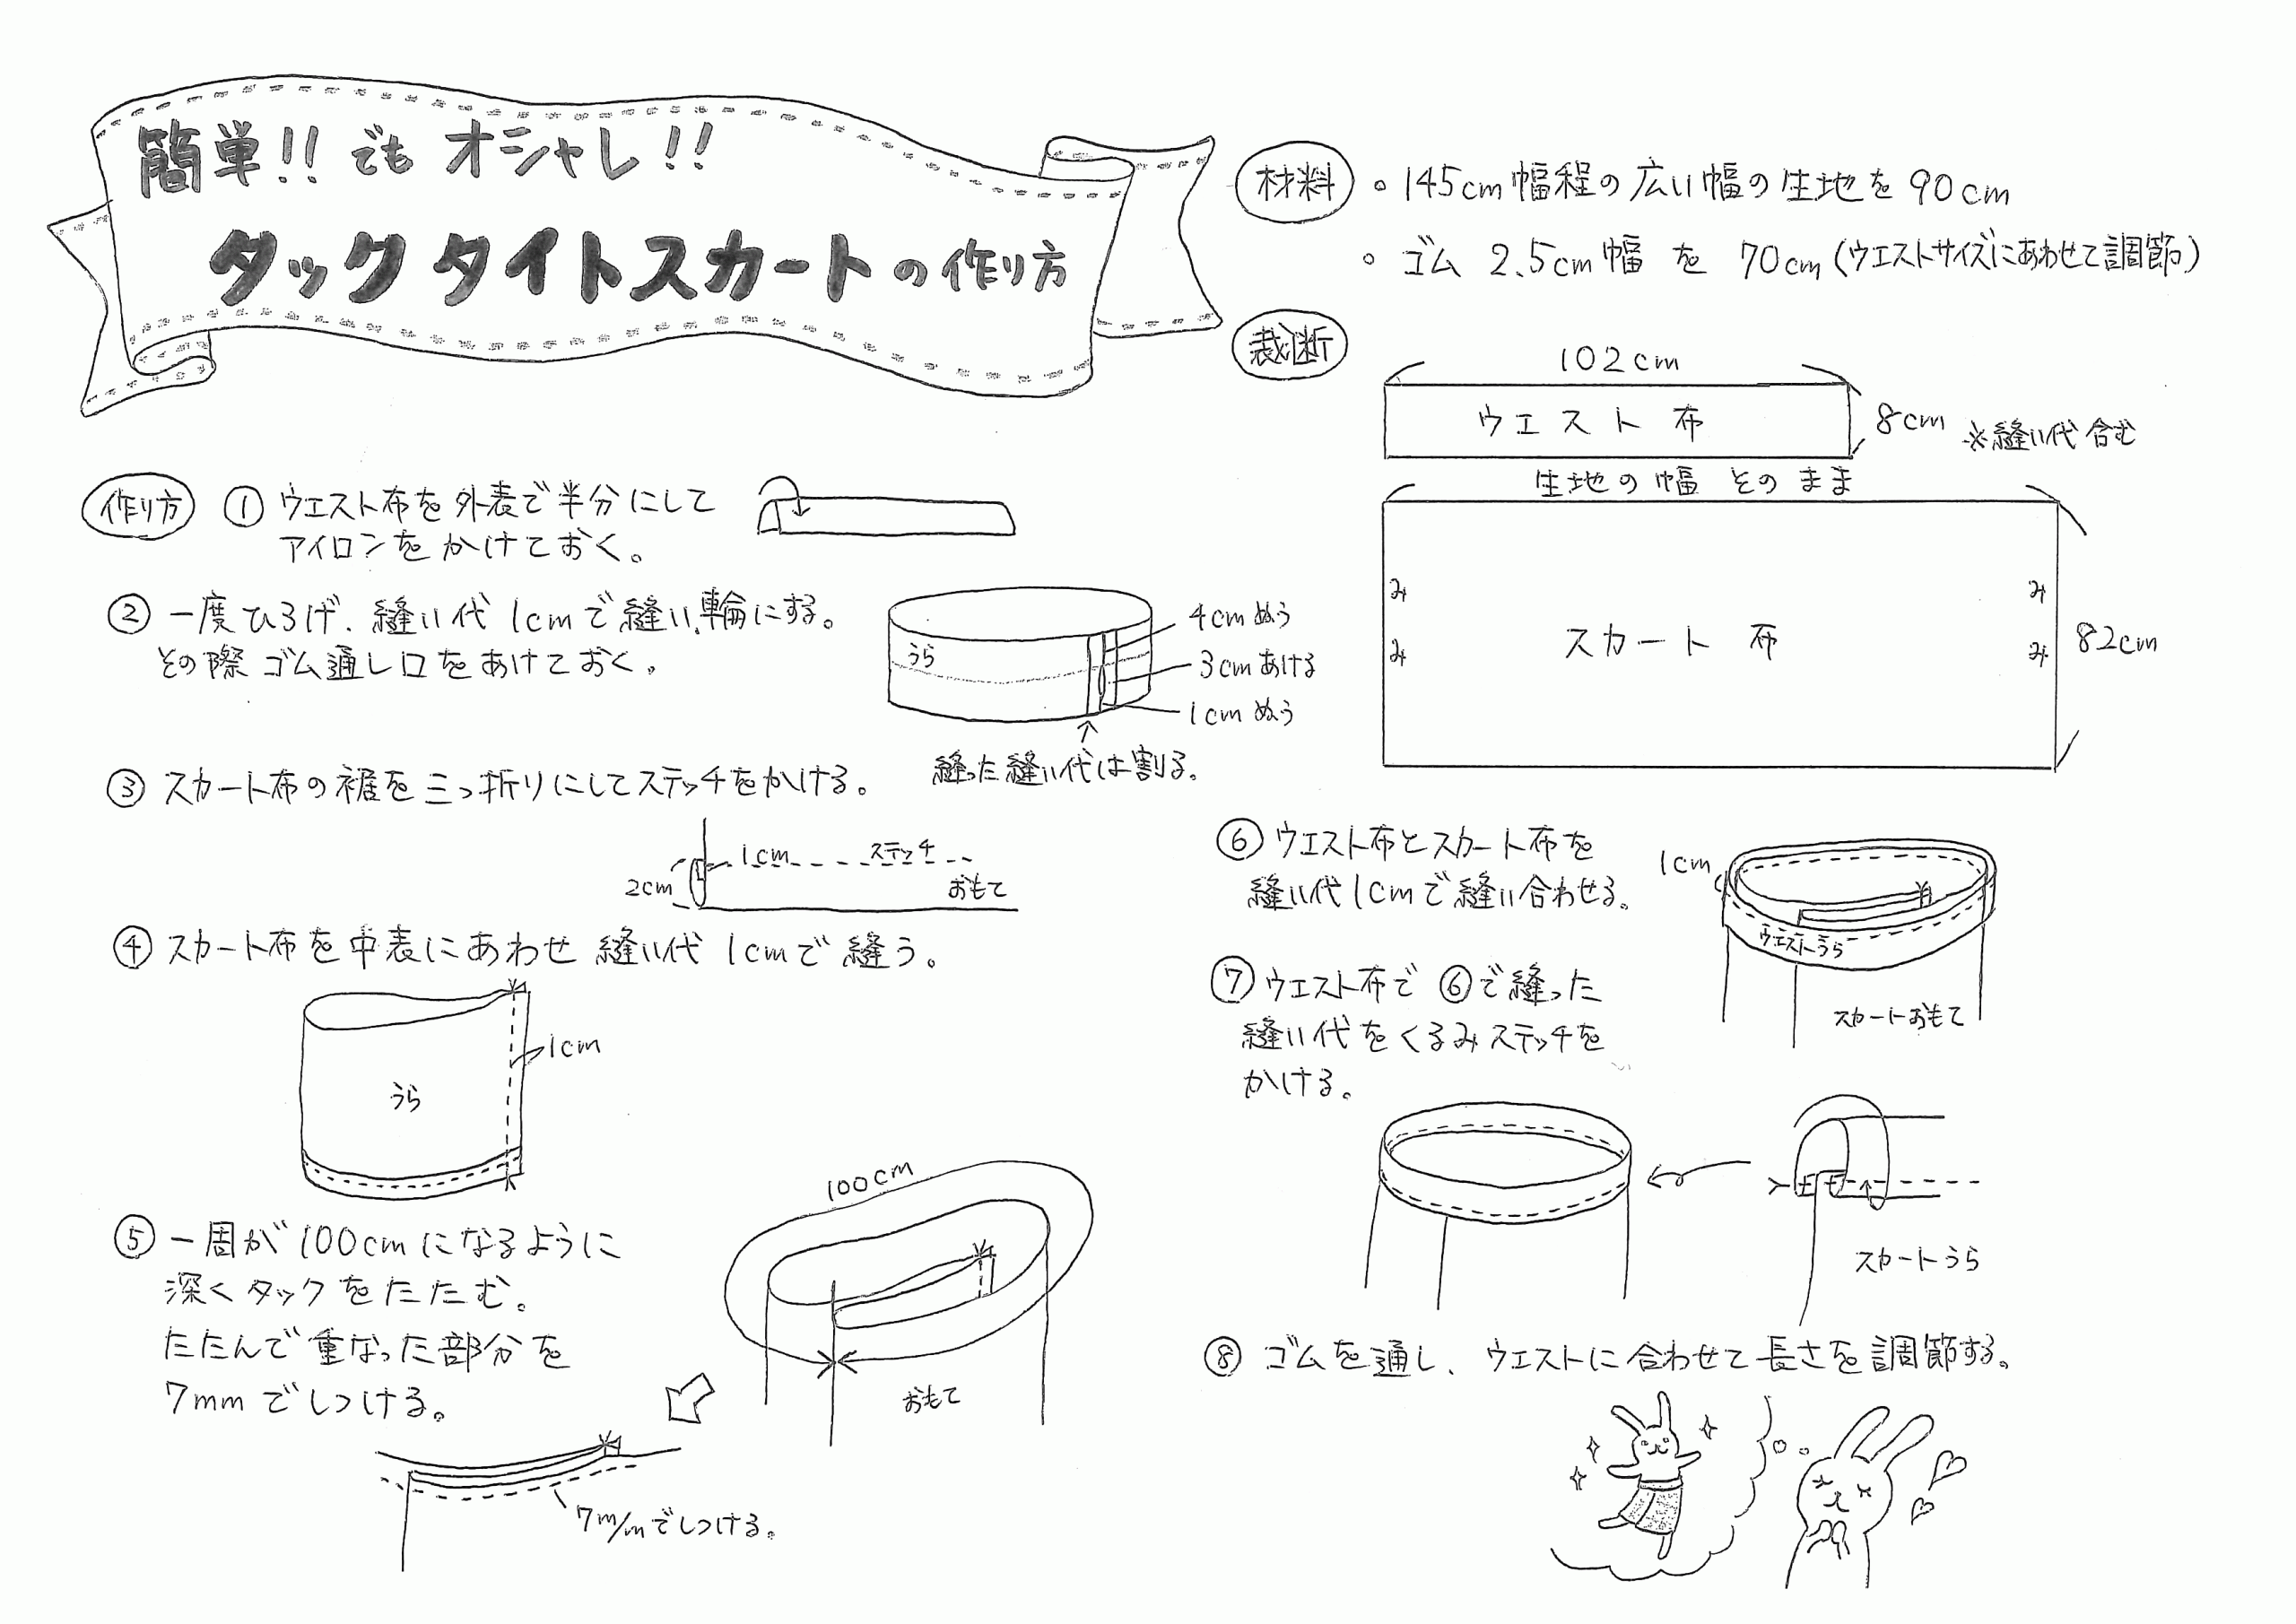 簡単!! でも オシャレ!!
タック タイトスカートの作り方
材料 ・145cm幅程の広い幅の生地を90cm
・ゴム 2.5cm幅 を 70cm(ウエストサイズにあわせて調節)
裁断
102cm
ウエスト布
8cm ※縫い代含む
生地の幅 そのまま
み
み
み
み
スカート 布
82cm
作り方 ① ウエスト布を外表で半分にして
アイロンをかけておく。
② 一度ひろげ、縫い代1cmで縫い、輪にする。
その際ゴム通し口をあけておく。
うら
4cmぬう
3cmあける
1cmぬう
縫った縫い代は割る。
③ スカート布の裾を三つ折りにしてステッチをかける。
2cm
1cm
ステッチ
おもて
④ スカート布を中表にあわせ 縫い代 1cmで縫う。
1cm
うら
⑤ 一周が100cmになるように
深くタックをたたむ。
たたんで重なった部分を
7mmでしつける。
100cm
おもて
7m/mでしつける。
⑥ ウエスト布とスカート布を
縫い代1cmで縫い合わせる。
1cm
ウエストうら
スカートおもて
⑦ ウエスト布で ⑥で縫った
縫い代をくるみステッチを
かける。
スカートうら
⑧ ゴムを通し、ウエストに合わせて長さを調節する。